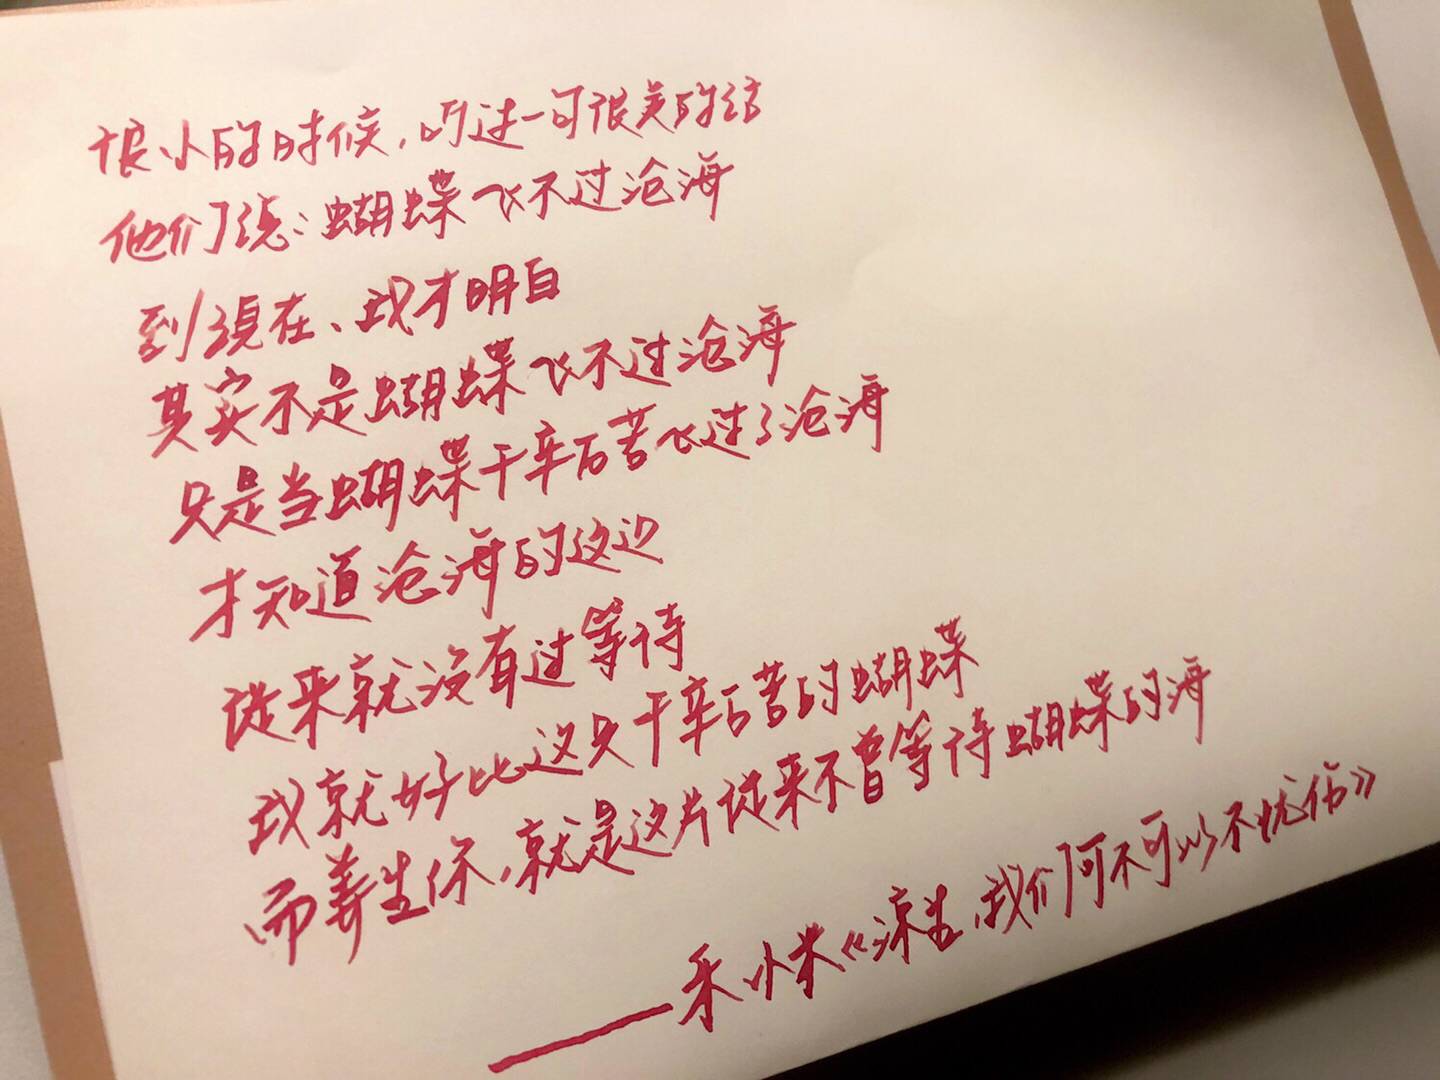 很小的时候，听过一句很美的话
他们说：蝴蝶飞不过沧海
到现在、我才明白
其实不是蝴蝶飞不过沧海
只是当蝴蝶千辛万苦飞过了沧海
才知道沧海的这边
从来就没有过等待
我就好比这只千辛万苦的蝴蝶
而姜生你，就是这片从来不曾等待蝴蝶的海
——禾小米《凉生，我们可不可以不忧伤》